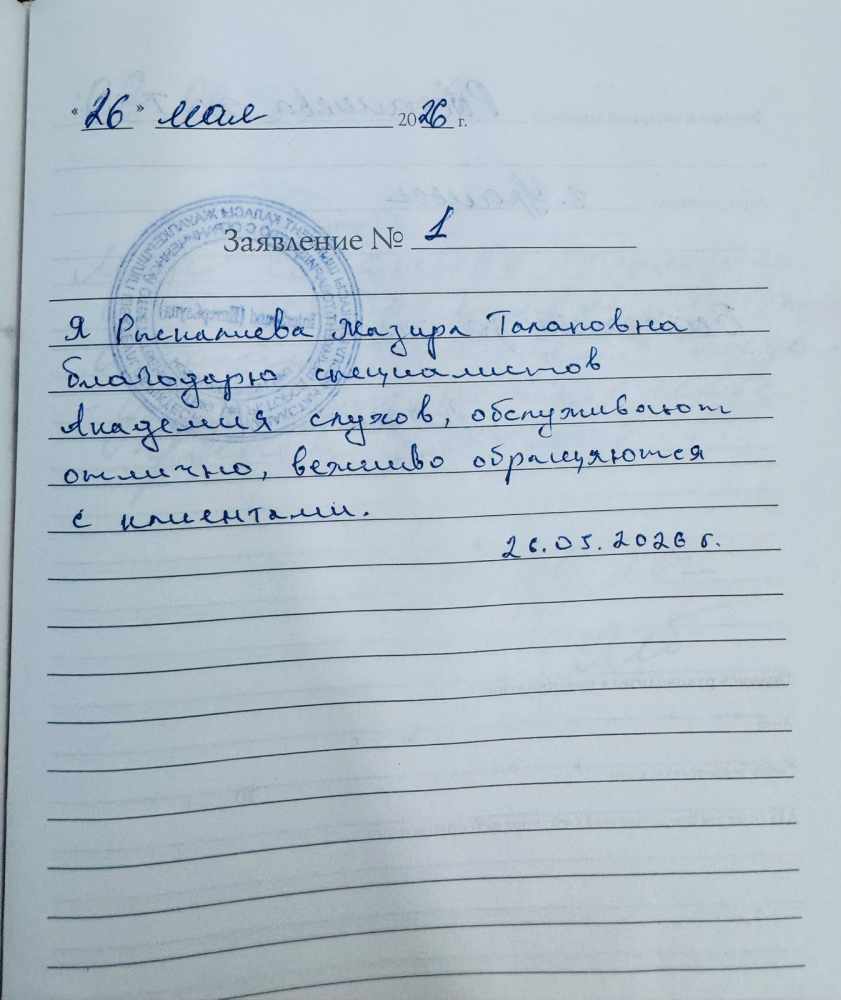 «26» мая 2026 г.
Заявление № 1
Я Рыскалиева Жазира Талаповна
благодарю специалистов
Академия слухов, обслуживают
отлично, вежливо обращяются
с клиентами.
26.05.2026 г.